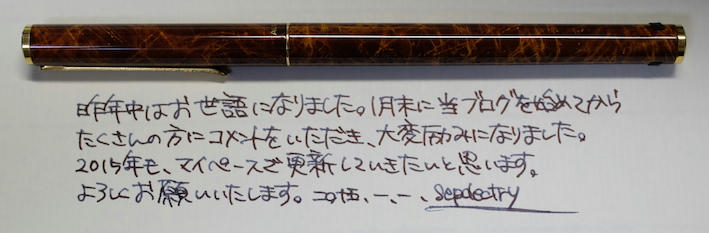 昨年中はお世語になりました。1月末に当ブログを始めてから
たくさんの方にコメントをいただき、大変励みになりました。
2015年も、マイペースで更新していきたいと思います。
よろしくお願いいたします。